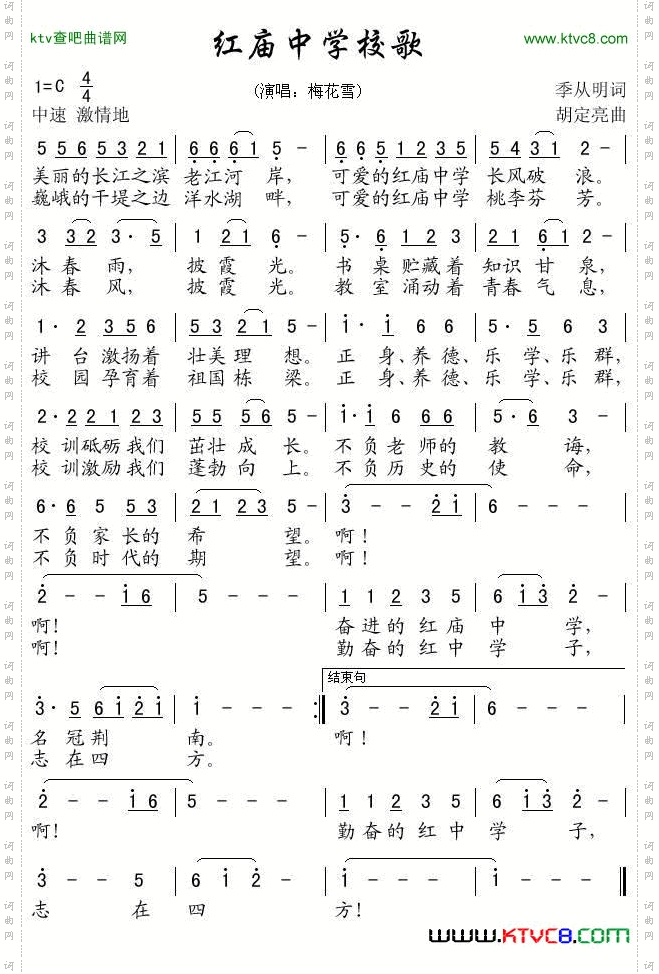 ktv查吧曲谱网
红庙中学校歌
www.ktvc8.com
1=C 4/4
(演唱：梅花雪)
季从明词
中速 激情地
胡定亮曲
5 5 6 5 3 2 1 | 6 6 6 1 5 - | 6 6 5 1 2 3 5 | 5 4 3 1 2 - |
美丽的长江之滨 老江河 岸， 可爱的红庙中学 长风破 浪。
巍峨的干堤之边 洋水湖 畔， 可爱的红庙中学 桃李芬 芳。
3 3 2 3· 5 | 1 2 1 6 - | 5· 6 1 2 3 | 2 2 1 6 1 2 |
沐 春 雨， 披 霞 光。 书 桌 贮藏着 知识 甘 泉，
沐 春 风， 披 霞 光。 教 室 涌动着 青春 气 息，
1· 2 3 5 6 | 5 3 2 1 5 - | i· i 6 6 | 5· 5 6 3 |
讲 台 激扬着 壮美 理 想。 正 身、养 德、乐 学、乐 群，
校 园 孕育着 祖国 栋 梁。 正 身、养 德、乐 学、乐 群，
2· 2 2 1 2 3 | 5 5 5 6 5 - | i· i 6 6 6 | 5· 6 3 |
校 训砥砺我们 茁壮 成 长。 不 负老师的 教 诲，
校 训激励我们 蓬勃 向 上。 不 负历史的 使 命，
6· 6 5 5 3 | 2 1 2 3 5 - | 3 - - 2 i | 6 - - - |
不 负 家 长的 希 望。 啊！
不 负 时 代的 期 望。 啊！
2 - - i 6 | 5 - - - | 1 1 2 3 5 | 6 i 3 2 - |
啊！ 奋进的 红庙 中 学，
啊！ 勤奋的 红中 学 子，
结束句
3· 5 6 i 2 i | i - - - :| 3 - - 2 i | 6 - - - |
名 冠荆 南。 啊！
志 在四 方。
2 - - i 6 | 5 - - - | 1 1 2 3 5 | 6 i 3 2 - |
啊！ 勤奋的 红中 学 子，
3 - - 5 | 6 i 2 - | i - - - | i - - ‖
志 在 四 方！
www.KTVC8.com
词曲网